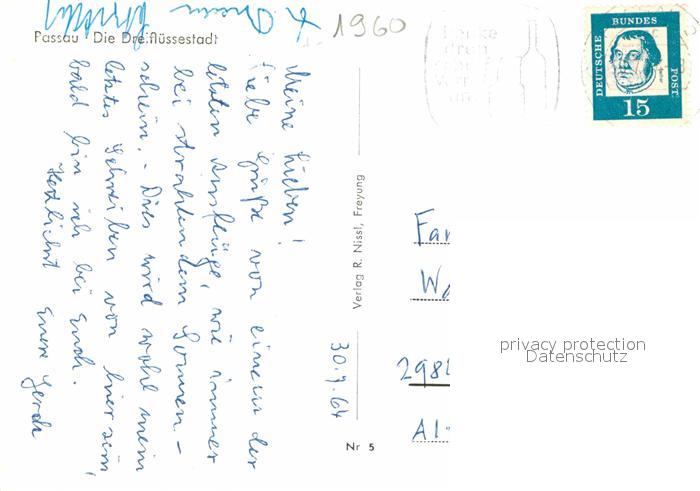 1960
Passau · Die Dreiflüssestadt
Meine Lieben!
Liebe Grüße von einem der
letzten Ausflüge, wie immer
bei strahlendem Sonnen-
schein. - Dies wird wohl mein
letztes Schreiben von hier sein,
bald bin ich bei Euch.
Herzlichst Euere Gerda
30.9.64
Verlag R. Nissl, Freyung
Nr 5
DEUTSCHE BUNDES POST
15
Fam
298
Al
privacy protection
Datenschutz